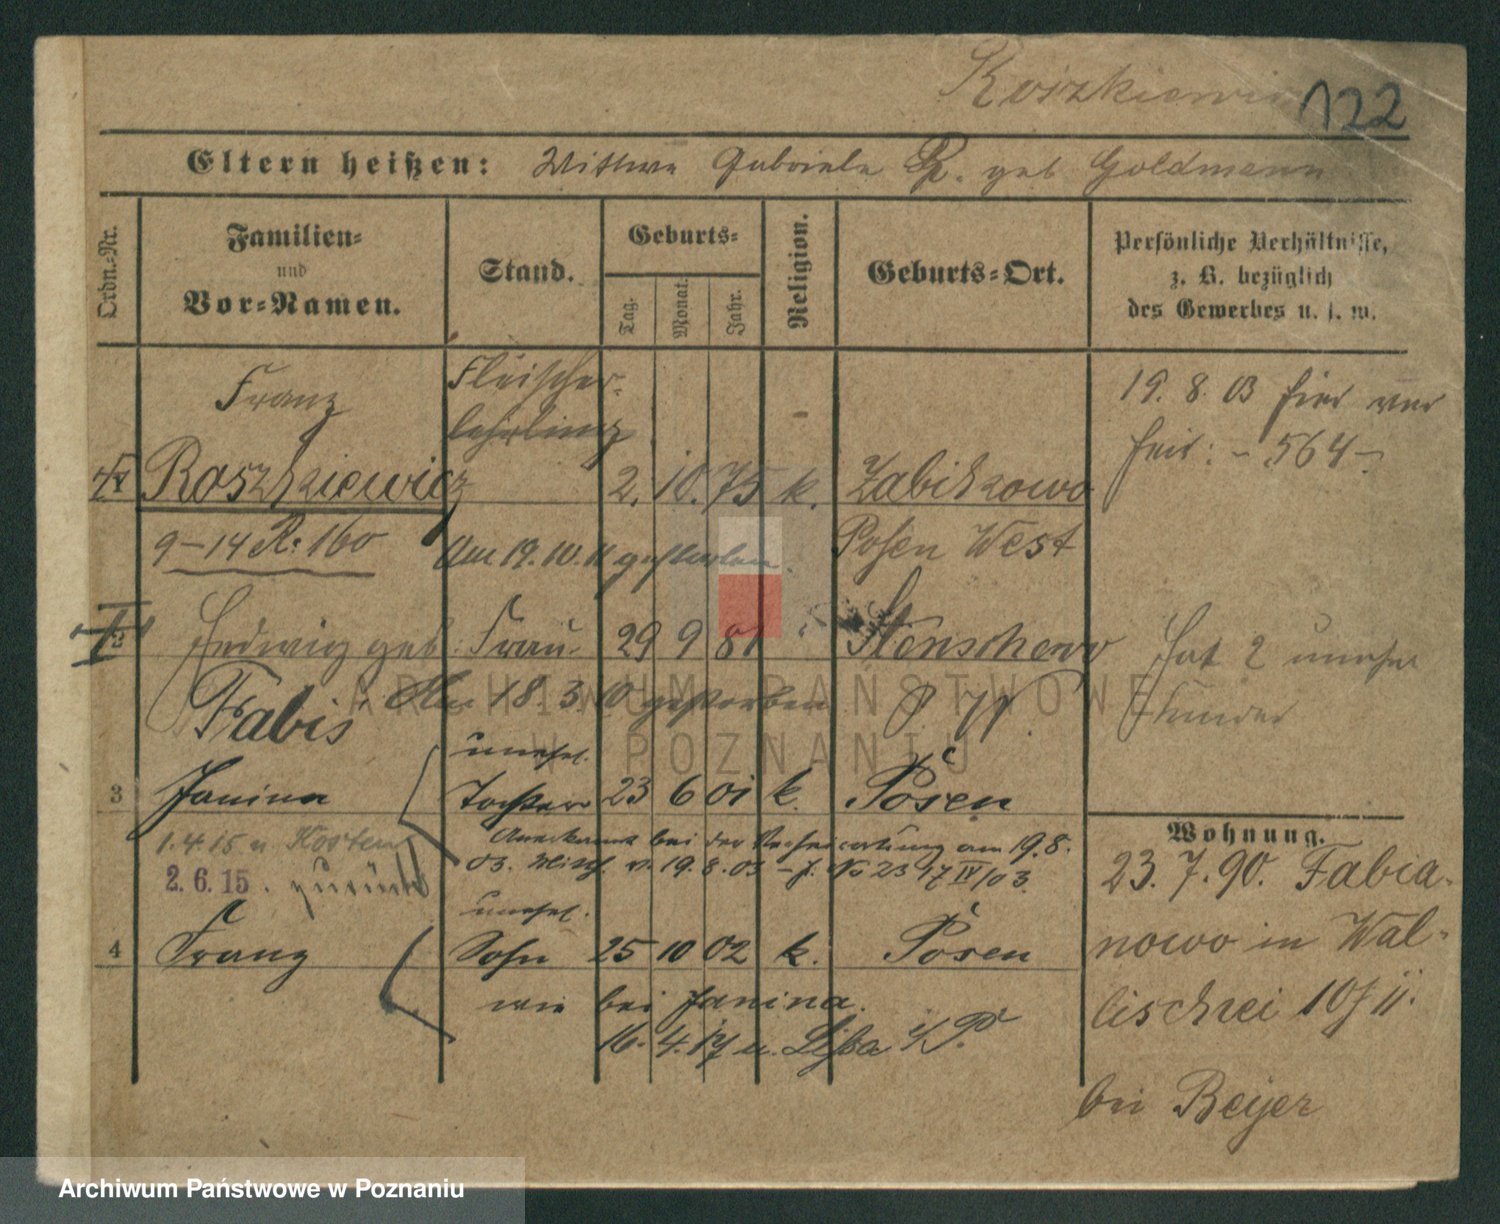 Roszkiewicz 122
Eltern heißen: Wittwe Gabriele R. geb Goldmann
Ordn.-Nr.
Familien-
und
Vor-Namen.
Stand.
Geburts-
Tag.
Monat.
Jahr.
Religion.
Geburts-Ort.
Persönliche Verhältnisse,
z. B. bezüglich
des Gewerbes u. s. w.
Franz
Fleischer-
lehrling
19. 8. 03 hier ver
heir: - 564 -
Roszkiewicz 2. 10. 75 k. Zabikowo
9-14 R. 160 Am 19. 10. 11 gestorben. Posen West
2 Hedwig geb. Frau 29 9 81 Stenschewo
Hat 2 unehel
Kinder
Fabis. Am 18. 3. 10 gestorben P. W.
unehel.
3 Janina Tochter 23 6 01 k. Posen
1.4.15 n Kosten
Anerkannt bei der Verheiratung am 19.8.
03. Mitth. v. 19. 8. 03 - J. No 2317 IV/03.
2. 6. 15. zurück
unehel.
4 Franz Sohn 25 10 02 k. Posen
wie bei Janina.
16. 4. 17 n. Lissa i/P.
Wohnung.
23. 7. 90. Fabia-
nowo in Wal-
lischei 10 II.
bei Beyer
ARCHIWUM PAŃSTWOWE
W POZNANIU
Archiwum Państwowe w Poznaniu